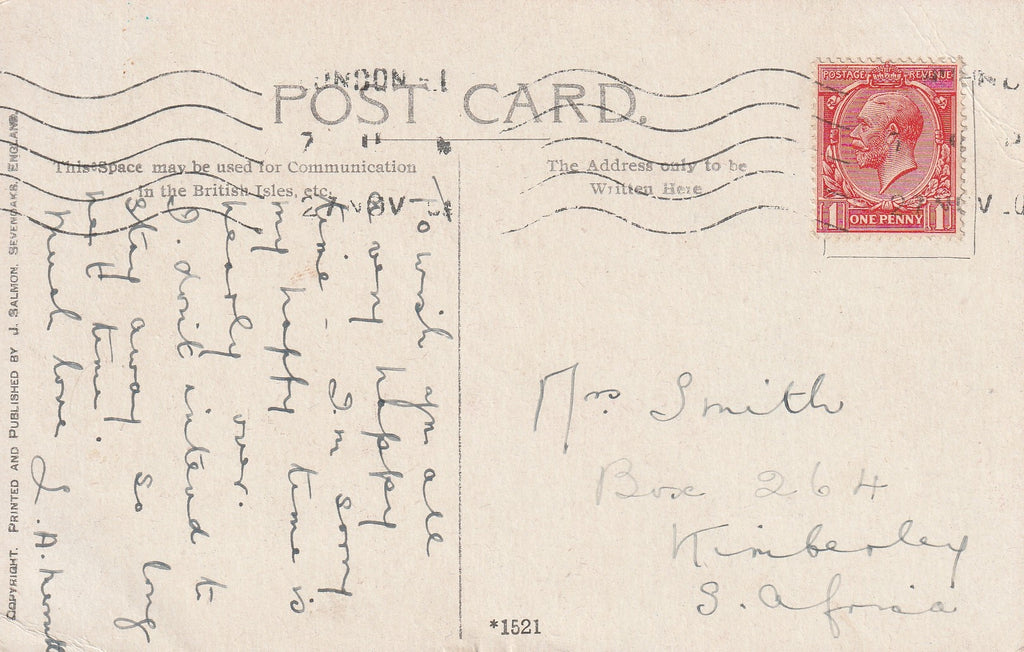 POST CARD.
LONDON
This Space may be used for Communication
in the British Isles, etc.
The Address only to be
Written Here
POSTAGE REVENUE
1 ONE PENNY 1
To wish you all
a very happy
time - I'm sorry
my happy time is
nearly over.
I don't intend to
stay away so long
next time.
Much love
Mrs Smith
Box 264
Kimberley
S. Africa
*1521
COPYRIGHT. PRINTED AND PUBLISHED BY J. SALMON, SEVENOAKS, ENGLAND.